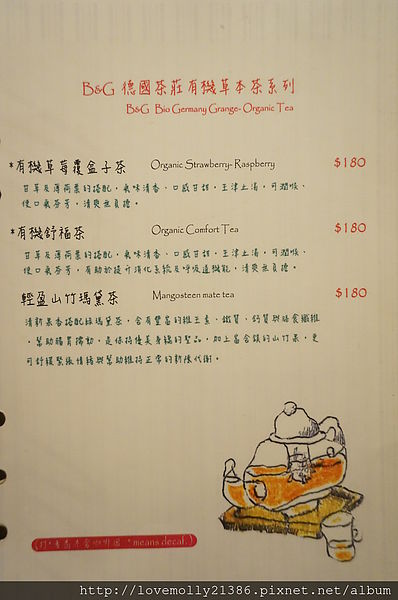 B&G 德國茶莊有機草本茶系列
B&G Bio Germany Grange- Organic Tea
*有機草莓覆盆子茶 Organic Strawberry- Raspberry $180
甘草及薄荷葉的搭配，氣味清香、口感甘甜，生津止渴，可潤喉、
使口氣芬芳，清爽無負擔。
*有機舒福茶 Organic Comfort Tea $180
甘草及薄荷葉的搭配，氣味清香、口感甘甜，生津止渴，可潤喉、
使口氣芬芳，有助於提升消化系統及呼吸道機能，清爽無負擔。
輕盈山竹瑪黛茶 Mangosteen mate tea $180
清新果香搭配綠瑪黛茶，含有豐富的維生素、鐵質、鈣質與膳食纖維
，幫助腸胃蠕動，是保持優美身緣的聖品，加上富含鎂的山竹果，更
可舒緩緊張情緒與幫助維持正常的新陳代謝。
(打*者為不含咖啡因 *means decaf.)
http://lovemolly21386.pixnet.net/album